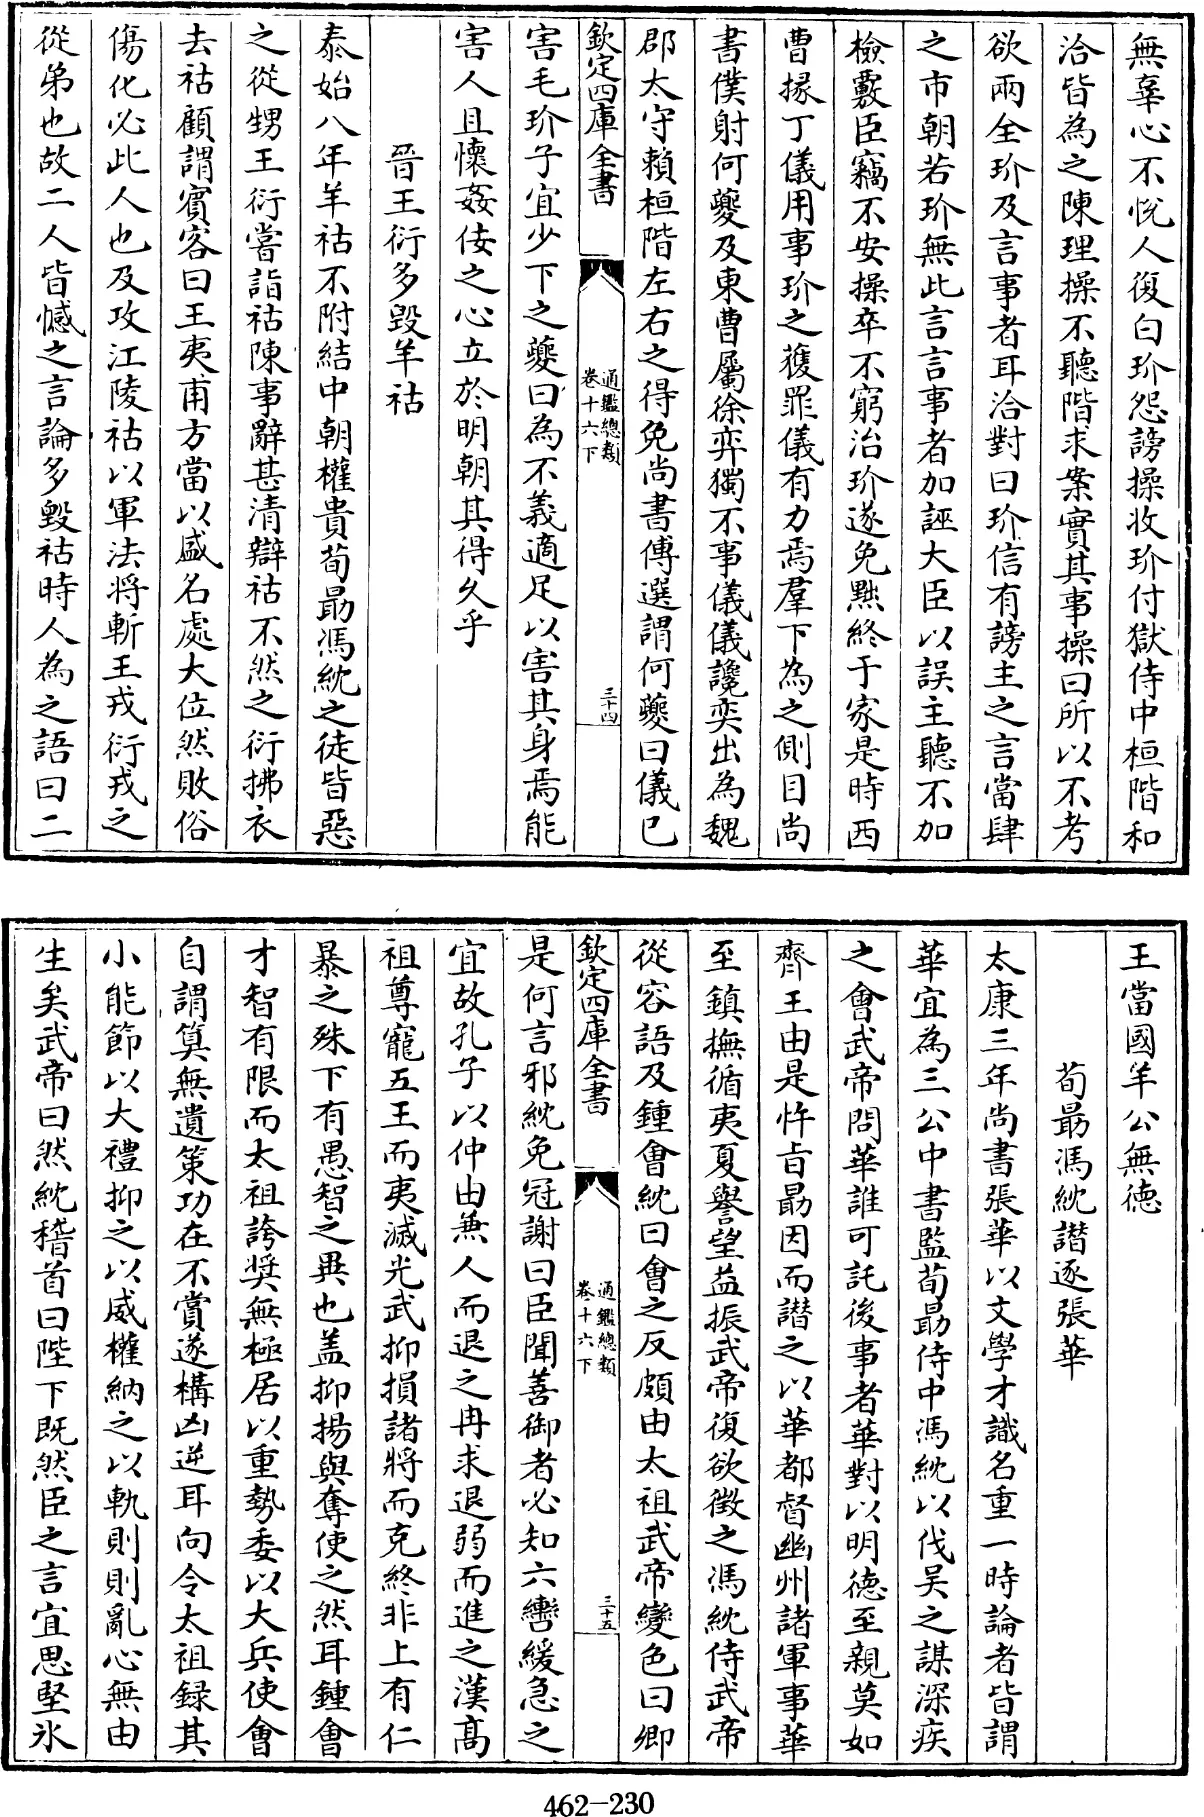 無辜心不悅人復白玠怨謗操收玠付獄侍中桓階和
洽皆為之陳理操不聽階求案實其事操曰所以不考
欲兩全玠及言事者耳洽對曰玠信有謗主之言當肆
之市朝若玠無此言言事者加誣大臣以誤主聽不加
檢覈臣竊不安操卒不窮治玠遂免黜終于家是時西
曹掾丁儀用事玠之獲罪儀有力焉羣下為之側目尚
書僕射何夔及東曹屬徐弈獨不事儀儀讒奕出為魏
郡太守賴桓階左右之得免尚書傅選謂何夔曰儀已
欽定四庫全書
通鑑總類
卷十六下
三十四
害毛玠子宜少下之夔曰為不義適足以害其身焉能
害人且懷姦佞之心立於明朝其得久乎
晉王衍多毀羊祜
泰始八年羊祜不附結中朝權貴荀勗馮紞之徒皆惡
之從甥王衍嘗詣祜陳事辭甚清辯祜不然之衍拂衣
去祜顧謂賓客曰王夷甫方當以盛名處大位然敗俗
傷化必此人也及攻江陵祜以軍法將斬王戎衍戎之
從弟也故二人皆憾之言論多毀祜時人為之語曰二
王當國羊公無德
荀最馮紞譖逐張華
太康三年尚書張華以文學才識名重一時論者皆謂
華宜為三公中書監荀勗侍中馮紞以伐吴之謀深疾
之會武帝問華誰可託後事者華對以明德至親莫如
齊王由是忤旨勗因而譖之以華都督幽州諸軍事華
至鎮撫循夷夏譽望益振武帝復欲徵之馮紞侍武帝
從容語及鍾會紞曰會之反頗由太祖武帝變色曰卿
欽定四庫全書
通鑑總類
卷十六下
三十五
是何言邪紞免冠謝曰臣聞善御者必知六轡緩急之
宜故孔子以仲由兼人而退之冉求退弱而進之漢髙
祖尊寵五王而夷滅光武抑損諸將而克終非上有仁
暴之殊下有愚智之異也盖抑揚與奪使之然耳鍾會
才智有限而太祖誇奬無極居以重勢委以大兵使會
自謂算無遺策功在不賞遂構凶逆耳向令太祖録其
小能節以大禮抑之以威權納之以軌則則亂心無由
生矣武帝曰然紞稽首曰陛下既然臣之言宜思堅冰
462-230